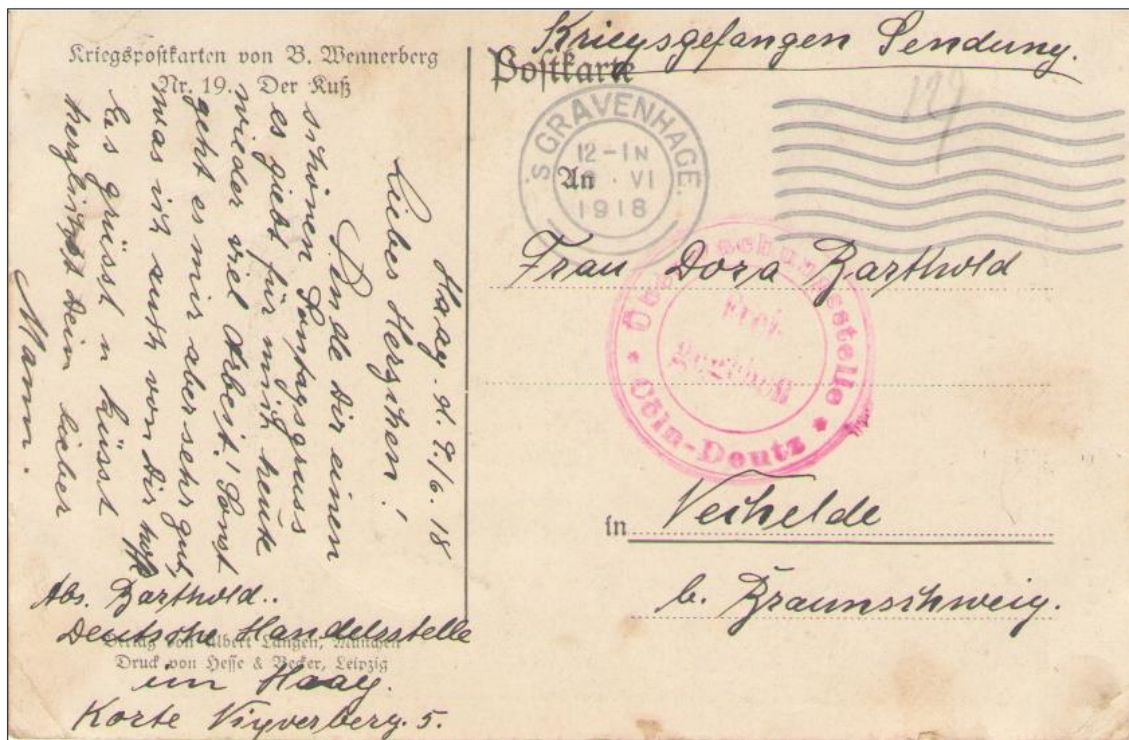 Kriegspostkarten von B. Wennerberg
Nr. 19. Der Kuß
Haag. d. 9./6. 18
Liebes Herzchen!
Sende Dir einen
schönen Sonntagsgruss
es giebt für mich heute
wieder viel Arbeit! Sonst
geht es mir aber sehr gut,
was ich auch von Dir hoffe
Es grüsst u küsst
herzlichst Dein lieber
Mann.
Abs. Barthold..
Deutsche Handelsstelle
im Haag.
Korte Viyverberg. 5.
Verlag von Albert Langen, München
Druck von Hesse & Becker, Leipzig
Kriegsgefangen Sendung.
Postkarte
'S GRAVENHAGE
12-1N
VI
1918
129
An
Frau Dora Barthold
Überwachungsstelle
Frei-
gegeben
Cöln-Deutz
in Vechelde
b. Braunschweig.